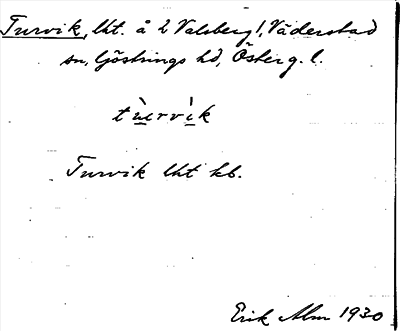 Turvik, lht. å 2 Valsberg!, Väderstad
sn, Göstrings hd, Österg. l.
tùrvìk
Turvik lht kb.
Erik Alm 1930